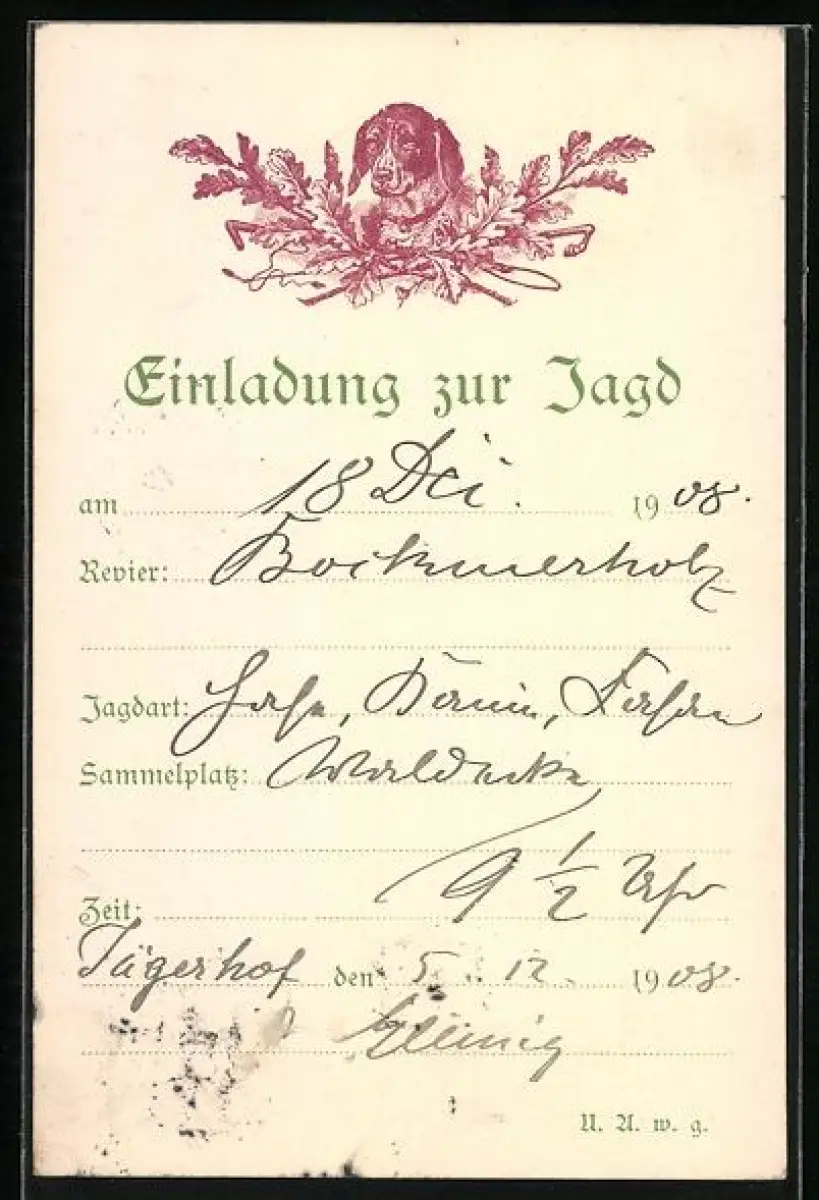 Einladung zur Jagd
am 18 Dez. 1908.
Revier: Bockmerholz
Jagdart: Hase, Kanin, Fasan
Sammelplatz: Waldecke
Zeit: 9 1/2 Uhr
Jägerhof den 5. 12. 1908.
U. A. w. g.